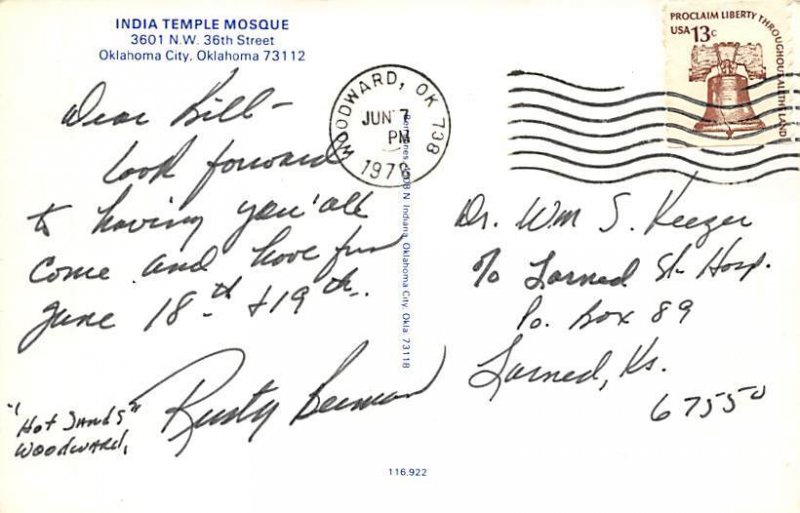 INDIA TEMPLE MOSQUE
3601 N.W. 36th Street
Oklahoma City, Oklahoma 73112
Dear Bill -
look forward
to having you'all
come and have fun
June 18th & 19th.
Rusty
"Hot Sands"
Woodward,
WOODWARD, OK 738
JUN 7
PM
PROCLAIM LIBERTY THROUGHOUT ALL THE LAND
USA 13c
N. Indiana, Oklahoma City, Okla. 73118
Dr. Wm S. Keezer
% Larned St. Hosp.
Po. Box 89
Larned, Ks.
67550
116,922